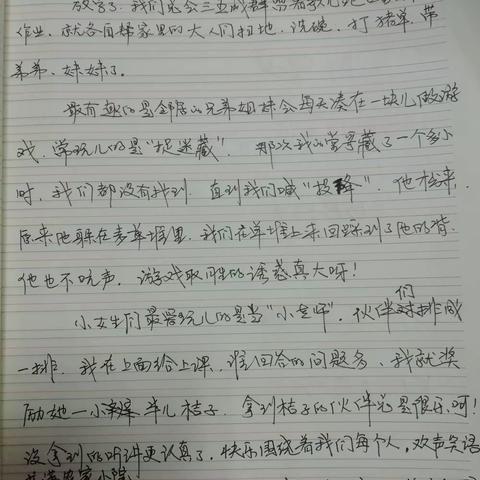 放学了，我们总会三五成群
作业，就各自帮家里的大人们扫地、洗碗、打猪草、带
弟弟、妹妹了。
最有趣的是邻居的兄弟姐妹会每天凑在一块儿做游
戏，常玩儿的是“捉迷藏”，那次我的堂哥藏了一个多小
时，我们都没有找到，直到我们喊“投降”，他才出来，
原来他躲在麦草堆里，我们在草堆上来回踩到了他的背，
他也不吭声，游戏取胜的诱惑真大呀！
小女生们最爱玩儿的是当“小老师”，伙伴们排成
一排，我在上面给上课，谁回答的问题多，我就奖
励她一小半儿桔子，拿到桔子的伙伴总是很乐呵！
没拿到的听讲更认真了，快乐围绕着我们每个人，欢声笑语